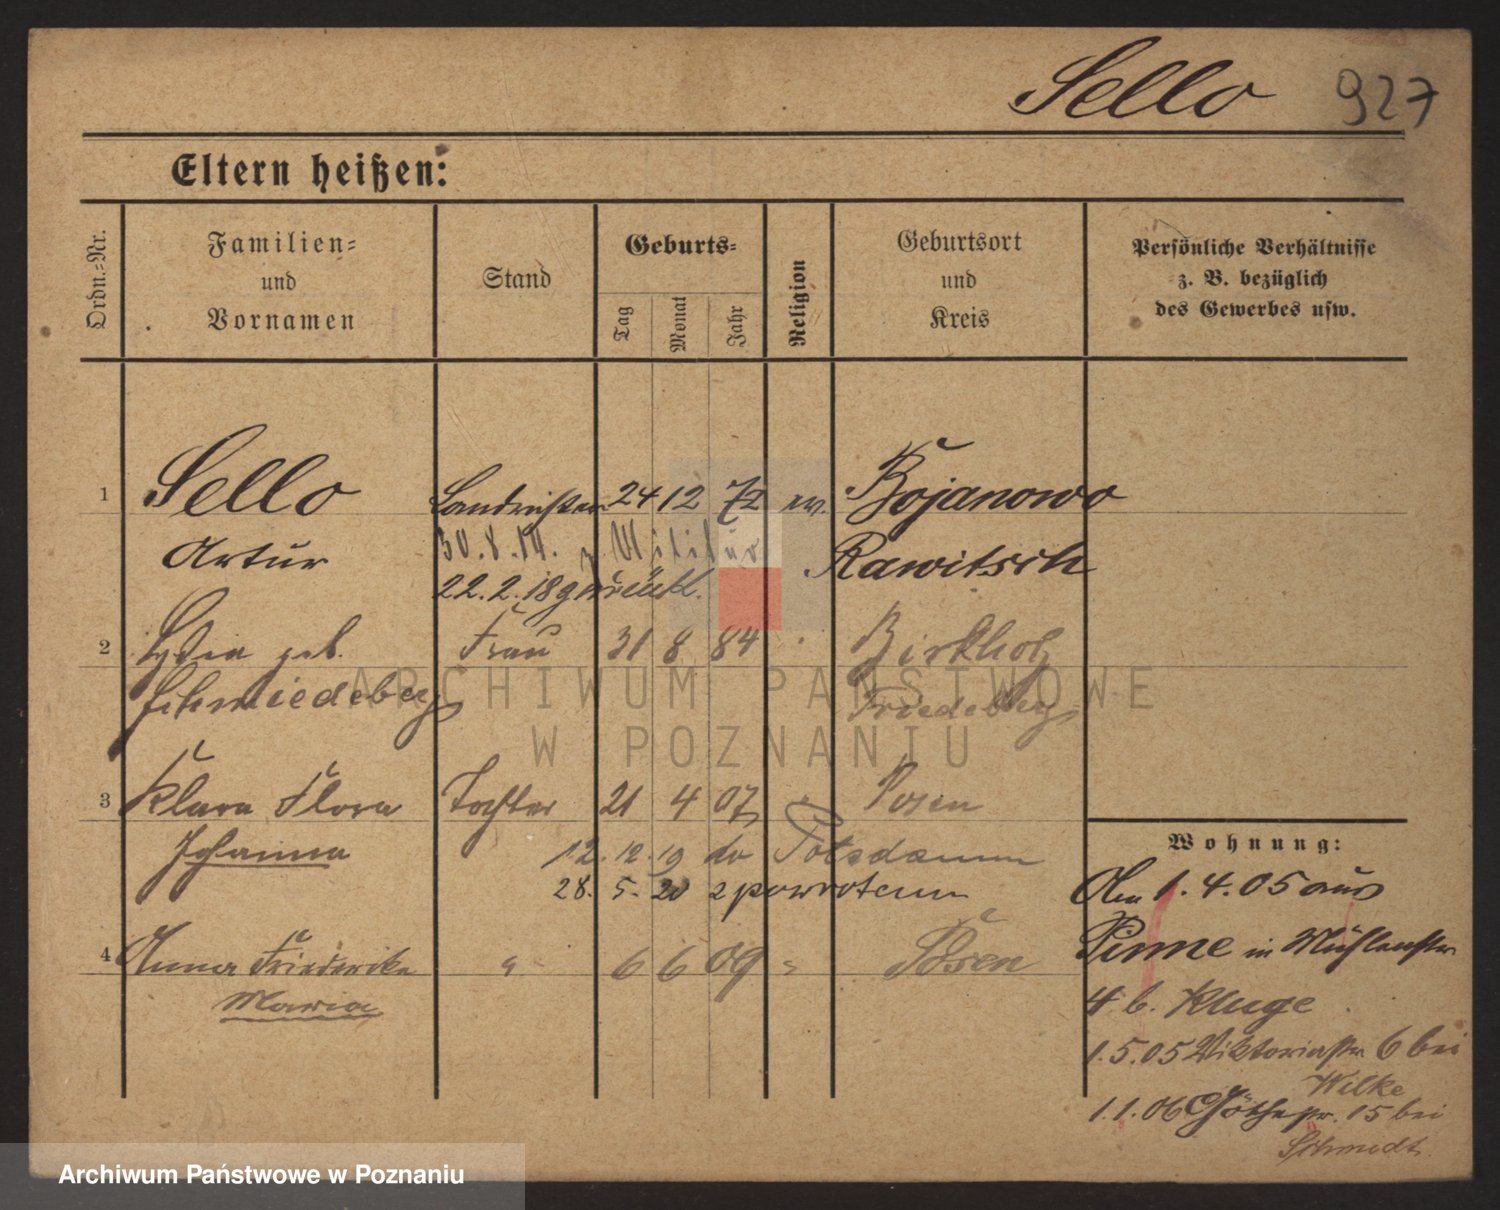 Sello 927
Eltern heißen:
Ordn.-Nr.
Familien-
und
Vornamen
Stand
Geburts-
Tag
Monat
Jahr
Religion
Geburtsort
und
Kreis
Persönliche Verhältnisse
z. B. bezüglich
des Gewerbes usw.
1 Sello 24 12 72 ev. Bojanowo
Artur 30.8.14. z. Militär Rawitsch
22.2.18 zurück.
2 geb. Frau 31 8 84 Birkholz
Schmiedeberg Friedeberg
3 Klara Flora Tochter 21 4 07 Posen
Johanna 12. 12. 19 do Potsdamm
28. 5. 20 z powrotem
4 Anna Friederike " 6 6 09 " Posen
Maria
Wohnung:
1.4.05 aus
Pinne in Mühlenstr
4 b. Kluge
1.5.05 Viktoriastr 6 bei
Wilke
1.1.06 15 bei
Schmedt.
ARCHIWUM PAŃSTWOWE
W POZNANIU
Archiwum Państwowe w Poznaniu